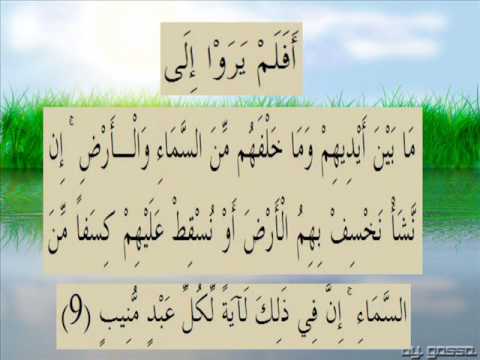 أَفَلَمْ يَرَوْا إِلَى
مَا بَيْنَ أَيْدِيهِمْ وَمَا خَلْفَهُم مِّنَ السَّمَاءِ وَالْـأَرْضِ ۚ إِن
نَّشَأْ نَخْسِفْ بِهِمُ الْأَرْضَ أَوْ نُسْقِطْ عَلَيْهِمْ كِسَفاً مِّنَ
السَّمَاءِ ۚ إِنَّ فِي ذَلِكَ لَآيَةً لِّكُلِّ عَبْدٍ مُّنِيبٍ (9)
By gassa